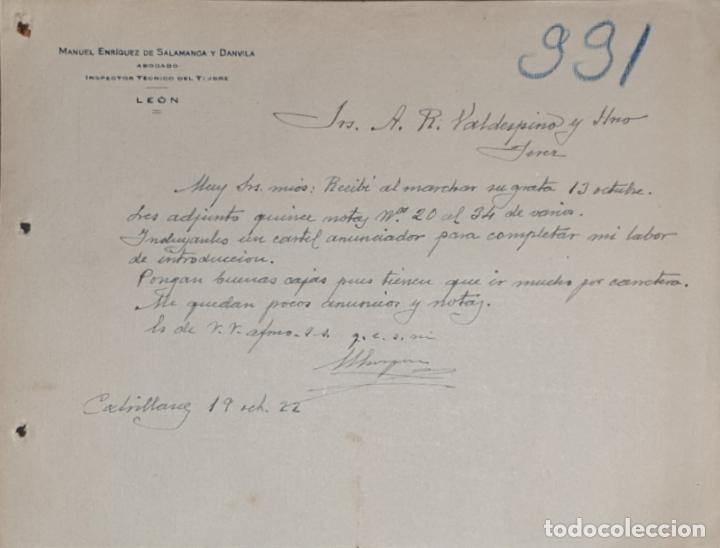 MANUEL ENRÍQUEZ DE SALAMANCA Y DANVILA
ABOGADO
INSPECTOR TÉCNICO DEL TIMBRE
LEÓN
991
Srs. A. R. Valdespino y Hno
Jerez
Muy Srs. mios: Recibi al marchar su grata 13 octubre.
Les adjunto quince notas Nos. 20 al 34 de varios.
Incluyanles un cartel anunciador para completar mi labor
de introduccion.
Pongan buenas cajas pues tienen que ir mucho por carretera.
Me quedan pocos anuncios y notas.
Es de V.V. afmo. s.s. q.e.s.m
19 oct. 22
todocoleccion.net